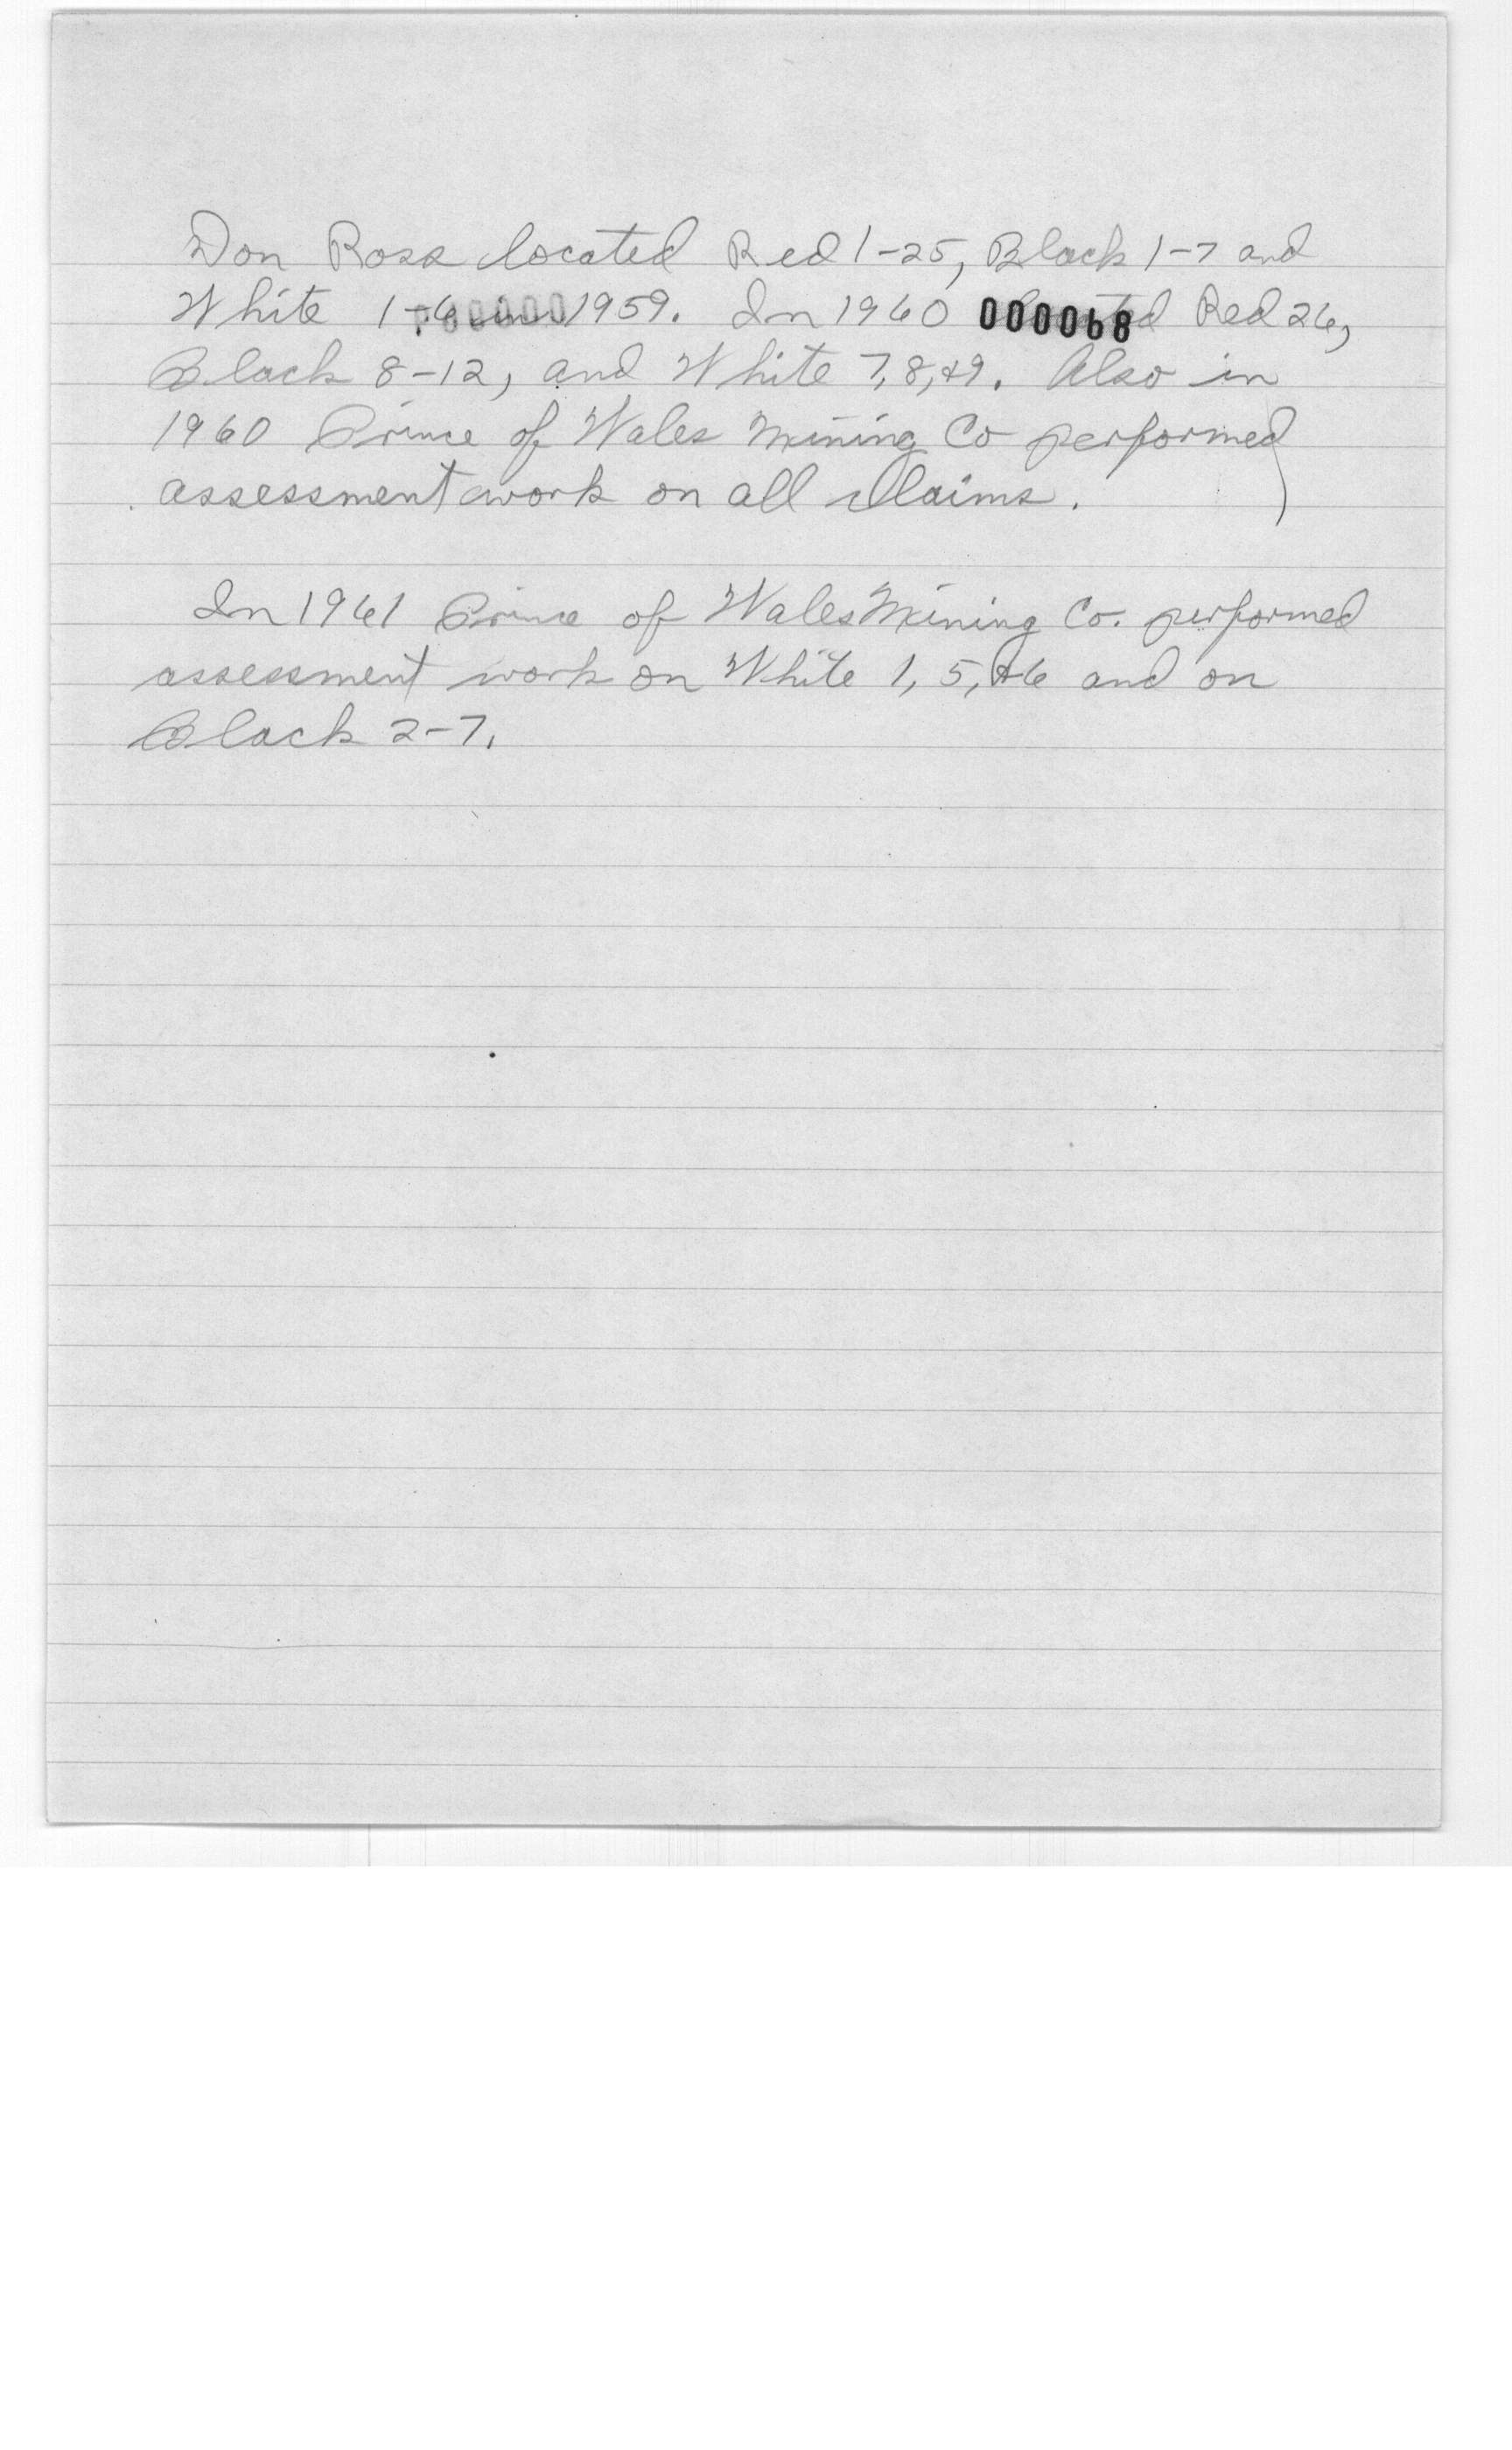 Don Ross located Red 1-25, Black 1-7 and
White 1-6 in 1959. In 1960 000068 located Red 26,
Black 8-12, and White 7, 8, &9. Also in
1960 Prince of Wales Mining Co performed
assessment work on all claims.
In 1961 Prince of Wales Mining Co. performed
assessment work on White 1, 5, &6 and on
Black 2-7.